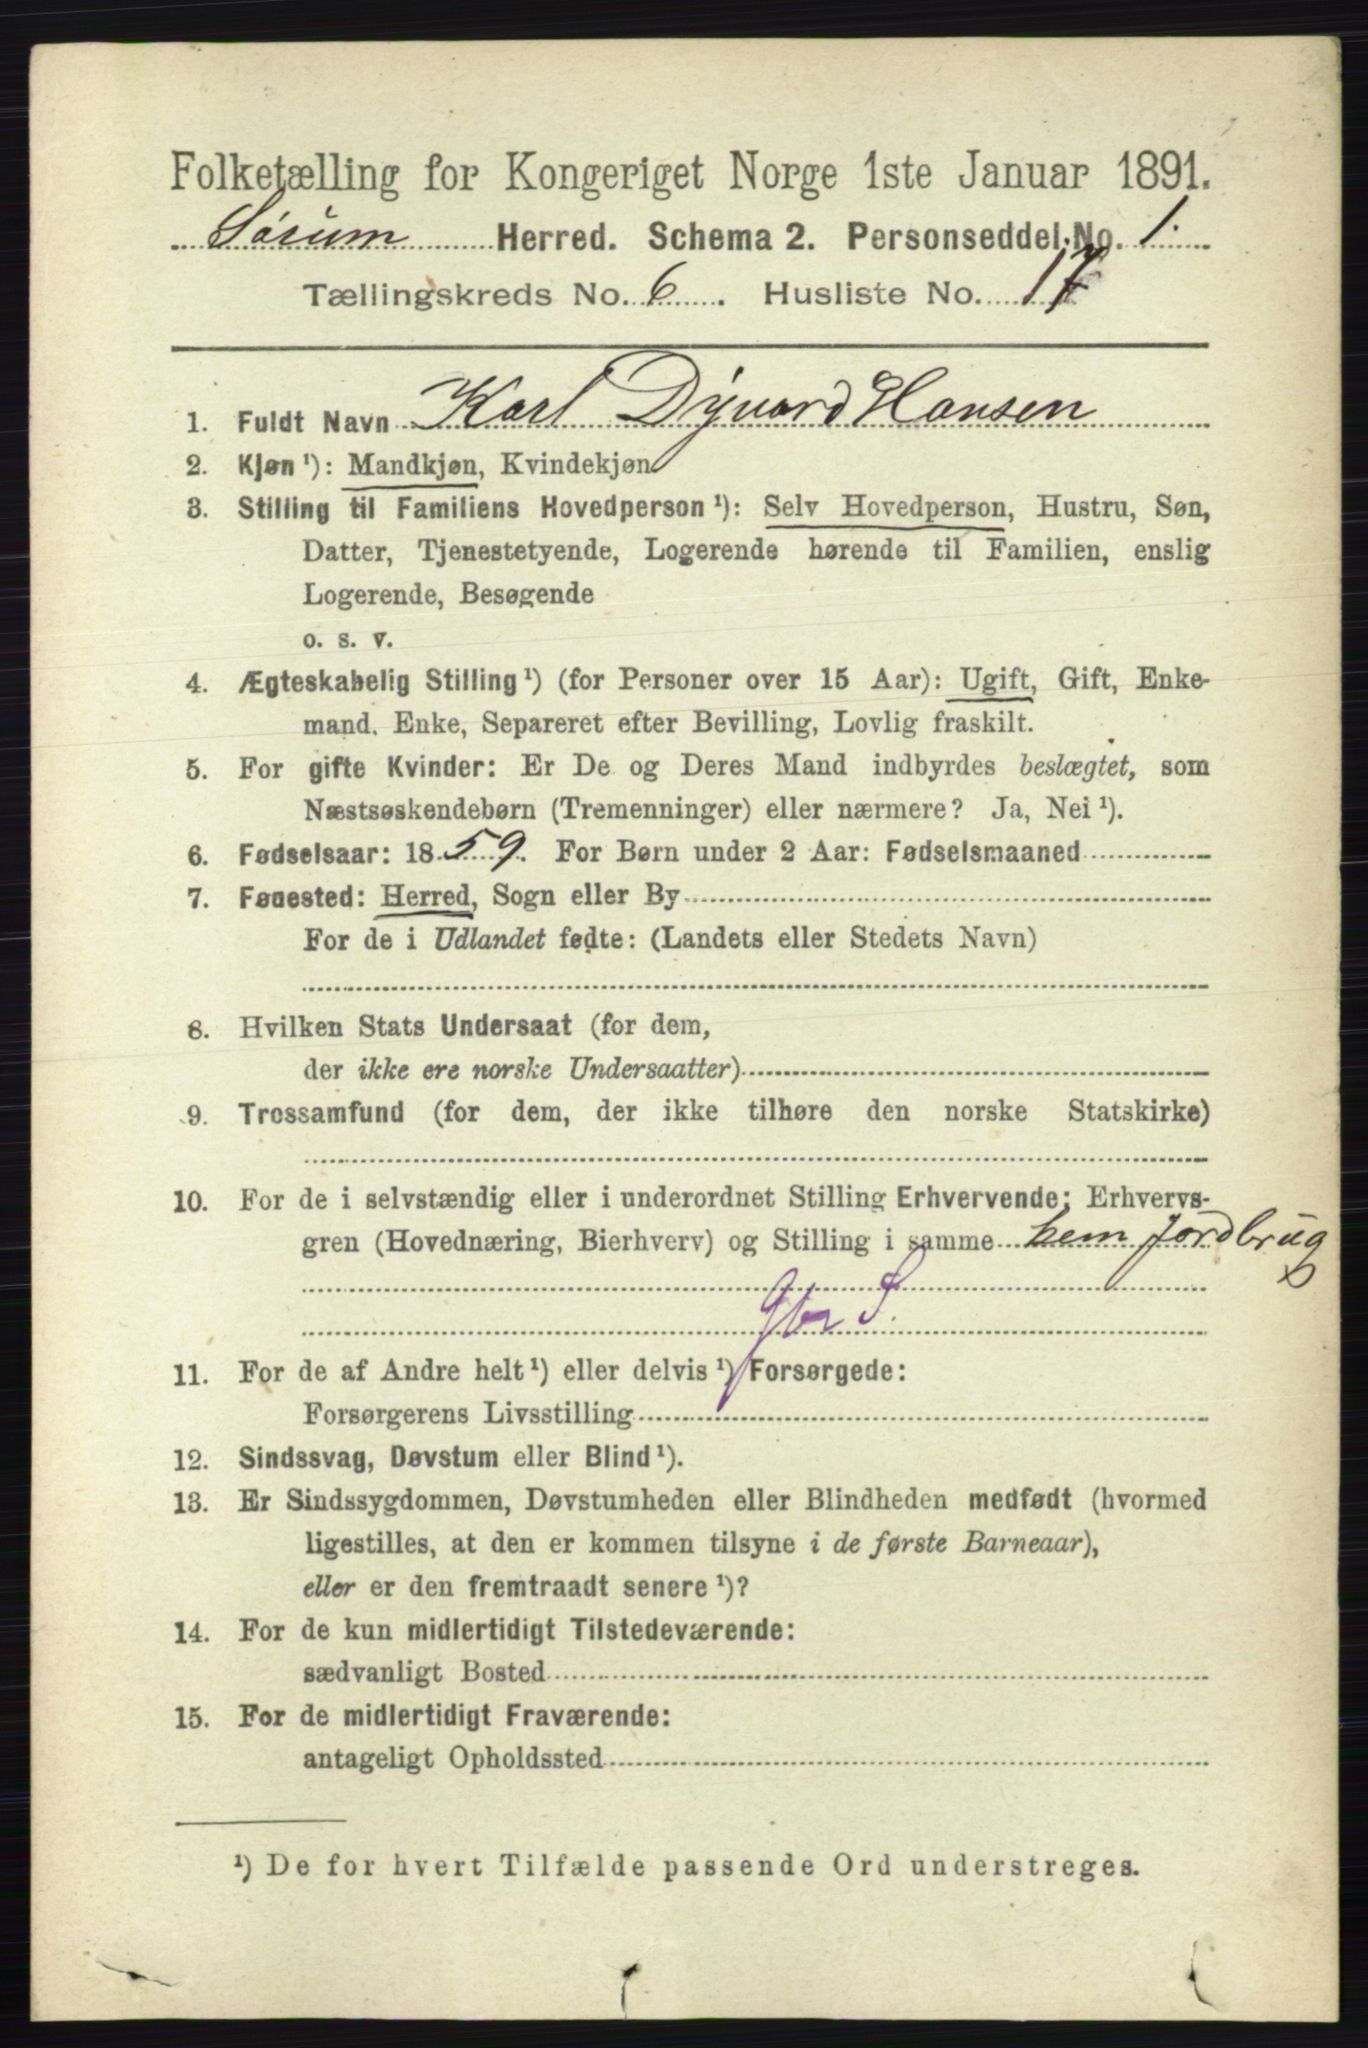 Folketælling for Kongeriget Norge 1ste Januar 1891.
Sørum Herred. Schema 2. Personseddel No. 1.
Tællingskreds No. 6. Husliste No. 17
1. Fuldt Navn Karl Dyvard Hansen
2. Kjøn ¹): Mandkjøn, Kvindekjøn
3. Stilling til Familiens Hovedperson ¹): Selv Hovedperson, Hustru, Søn,
Datter, Tjenestetyende, Logerende hørende til Familien, enslig
Logerende, Besøgende
o. s. v.
4. Ægteskabelig Stilling ¹) (for Personer over 15 Aar): Ugift, Gift, Enke-
mand, Enke, Separeret efter Bevilling, Lovlig fraskilt.
5. For gifte Kvinder: Er De og Deres Mand indbyrdes beslægtet, som
Næstsøskendebørn (Tremenninger) eller nærmere? Ja, Nei ¹).
6. Fødselsaar: 1859. For Børn under 2 Aar: Fødselsmaaned
7. Fødested: Herred, Sogn eller By
For de i Udlandet fødte: (Landets eller Stedets Navn)
8. Hvilken Stats Undersaat (for dem,
der ikke ere norske Undersaatter)
9. Trossamfund (for dem, der ikke tilhøre den norske Statskirke)
10. For de i selvstændig eller i underordnet Stilling Erhvervende: Erhvervs-
gren (Hovednæring, Bierhverv) og Stilling i samme hem Jordbrug
Gbr S.
11. For de af Andre helt ¹) eller delvis ¹) Forsørgede:
Forsørgerens Livsstilling
12. Sindssvag, Døvstum eller Blind ¹).
13. Er Sindssygdommen, Døvstumheden eller Blindheden medfødt (hvormed
ligestilles, at den er kommen tilsyne i de første Barneaar),
eller er den fremtraadt senere ¹)?
14. For de kun midlertidigt Tilstedeværende:
sædvanligt Bosted
15. For de midlertidigt Fraværende:
antageligt Opholdssted
¹) De for hvert Tilfælde passende Ord understreges.